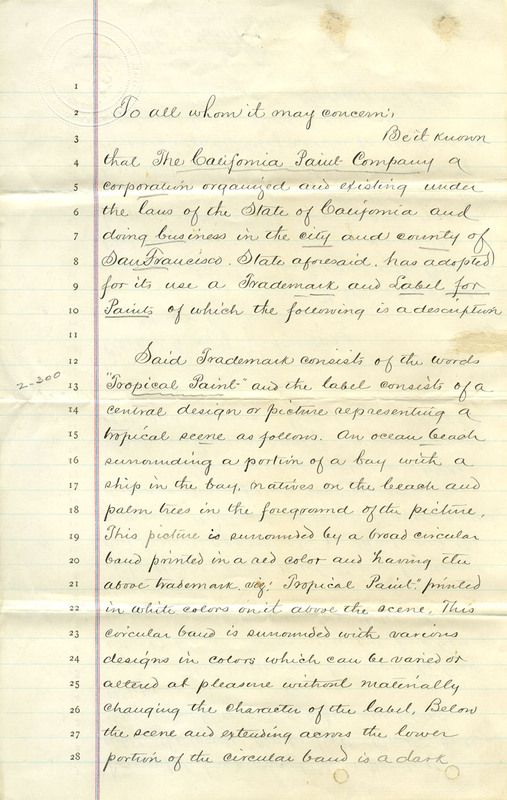 1
2 To all whom it may concern,
3 Be it known
4 that The California Paint Company a
5 corporation organized and existing under
6 the laws of the State of California and
7 doing business in the city and county of
8 San Francisco, State aforesaid, has adopted
9 for its use a Trademark and Label for
10 Paints of which the following is a description
11
12 Said Trademark consists of the words
2-300
13 "Tropical Paint" and the label consists of a
14 central design or picture representing a
15 tropical scene as follows. An ocean beach
16 surrounding a portion of a bay with a
17 ship in the bay, natives on the beach and
18 palm trees in the foreground of the picture.
19 This picture is surrounded by a broad circular
20 band printed in a red color and having the
21 above trademark viz: "Tropical Paint," printed
22 in white colors on it above the scene. This
23 circular band is surrounded with various
24 designs in colors which can be varied or
25 altered at pleasure without materially
26 changing the character of the label. Below
27 the scene and extending across the lower
28 portion of the circular band is a dark